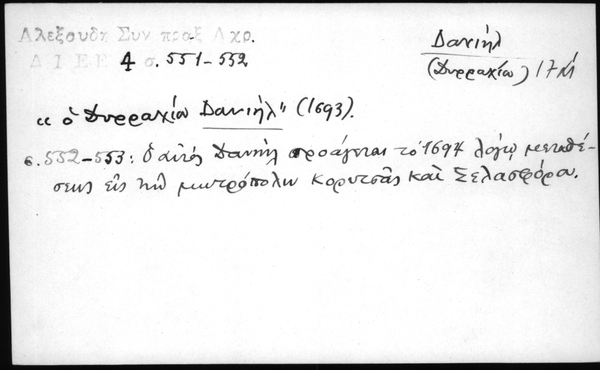 Αλεξουδη Συν πραξ Αχρ.
Δ Ι Ε Ε 4 σ. 551-552
Δανιήλ
(Δυρραχίου) 17Μ
"ὁ Δυρραχίου Δανιήλ" (1693).
σ. 552-553: ὁ αὐτός Δανιήλ προάγεται τό 1694 λόγῳ μεταθέ-
σεως εἰς τήν μητρόπολιν Κορυτσᾶς καί Σελασφόρου.